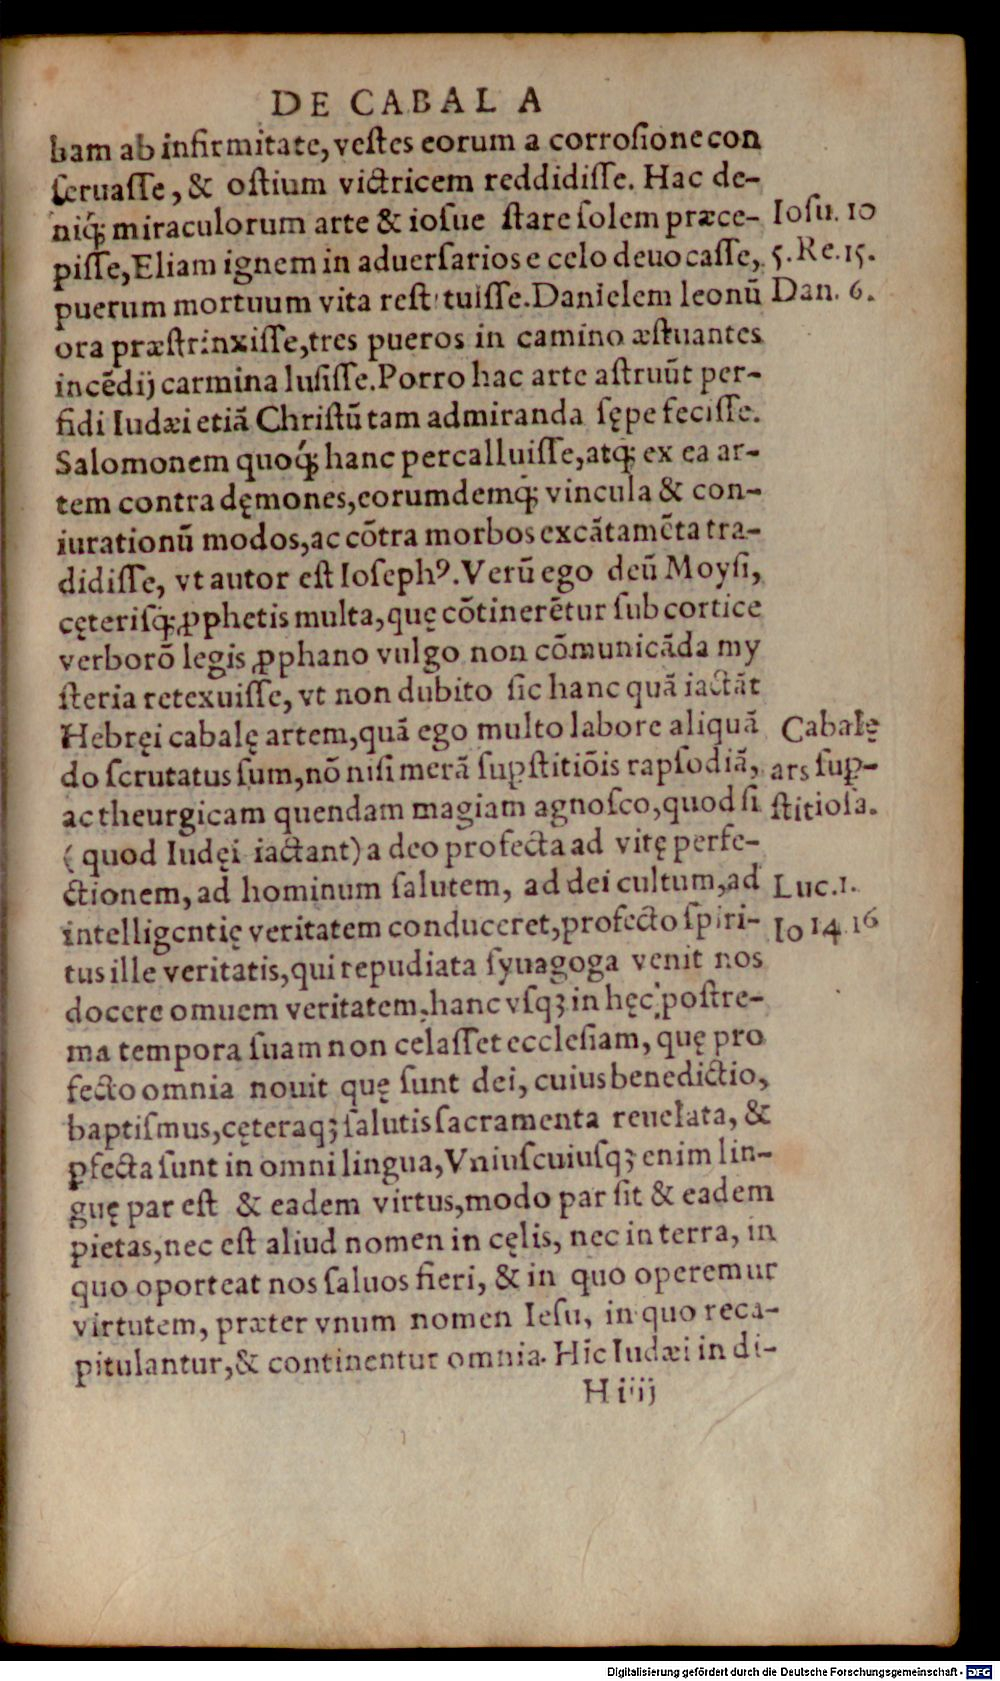 DE CABALA
bam ab infirmitate, vestes eorum a corrosione con
seruasse, & ostium victricem reddidisse. Hac de-
niq́; miraculorum arte & iosue stare solem præce- Iosu. 10
pisse, Eliam ignem in aduersarios e celo deuocasse, 5. Re. 15.
puerum mortuum vita restituisse. Danielem leonū Dan. 6.
ora præstrinxisse, tres pueros in camino æstuantes
incēdij carmina lusisse. Porro hac arte astruūt per-
fidi Iudæi etiā Christū tam admiranda sępe fecisse.
Salomonem quoq́; hanc percalluisse, atq́; ex ea ar-
tem contra dęmones, eorumdemq́; vincula & con-
iurationū modos, ac cōtra morbos excātamēta tra-
didisse, vt autor est Iosephꝰ. Verū ego deū Moysi,
cęterisq́; ꝓphetis multa, quę cōtinerētur sub cortice
verborō legis ꝓphano vulgo non cōmunicāda my
steria retexuisse, vt non dubito sic hanc quā iactāt
Hebręi cabalę artem, quā ego multo labore aliquā Cabalę
do scrutatus sum, nō nisi merā suꝑstitiōis rapsodiā, ars suꝑ-
ac theurgicam quendam magiam agnosco, quod si stitiosa.
(quod Iudęi iactant) a deo profecta ad vitę perfe-
ctionem, ad hominum salutem, ad dei cultum, ad Luc. 1.
intelligentię veritatem conduceret, profecto spiri- Io 14 16
tus ille veritatis, qui repudiata syuagoga venit nos
docere omuem veritatem, hanc vsqꝫ in hęc postre-
ma tempora suam non celasset ecclesiam, quę pro
fecto omnia nouit quę sunt dei, cuius benedictio,
baptismus, cęteraqꝫ salutis sacramenta reuelata, &
ꝑfecta sunt in omni lingua, Vniuscuiusqꝫ enim lin-
guę par est & eadem virtus, modo par sit & eadem
pietas, nec est aliud nomen in cęlis, nec in terra, in
quo oporteat nos saluos fieri, & in quo operemur
virtutem, præter vnum nomen Iesu, in quo reca-
pitulantur, & continentur omnia. Hic Iudæi in di-
H iiij
Digitalisierung gefördert durch die Deutsche Forschungsgemeinschaft - DFG